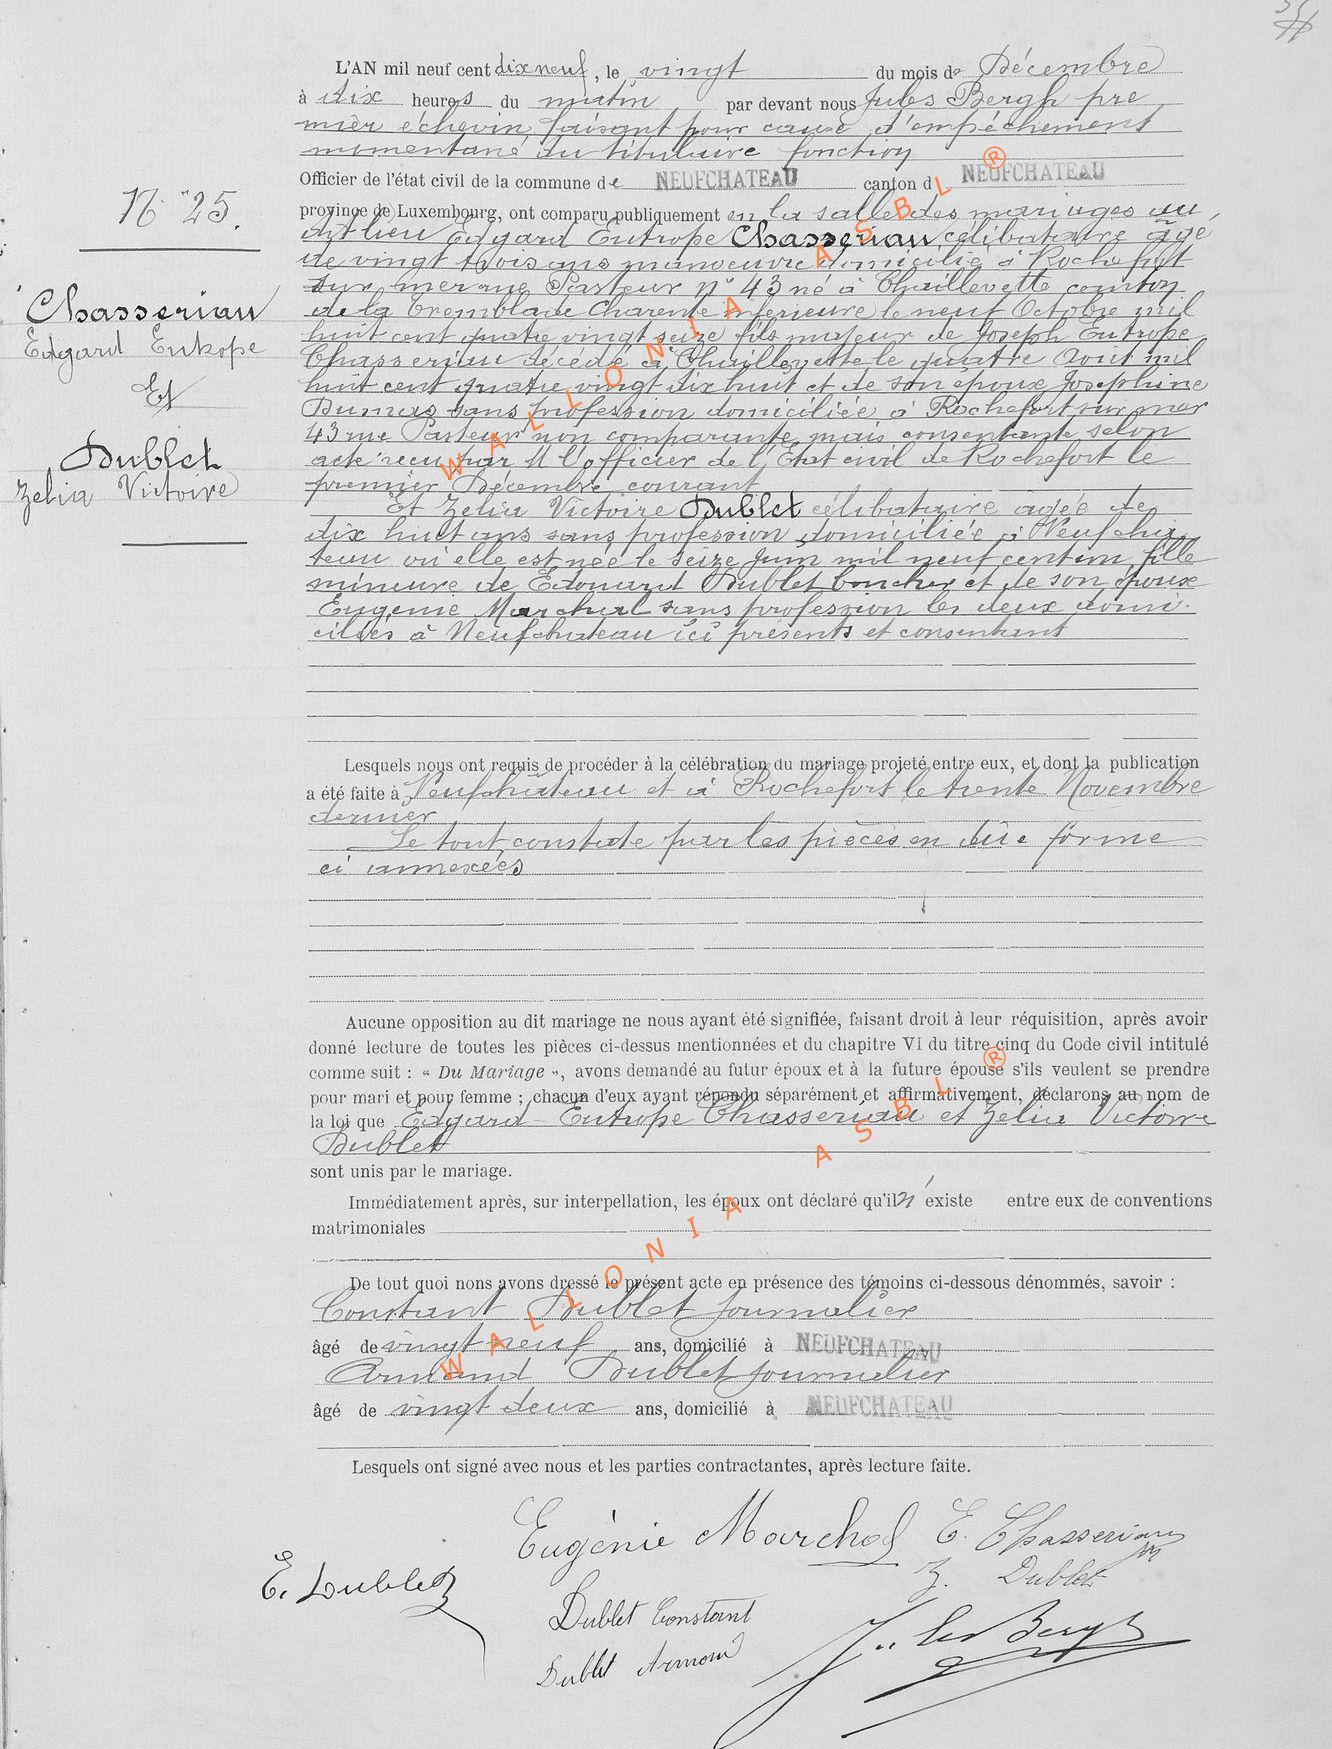 L'AN mil neuf cent dix neuf, le vingt du mois de Décembre
à dix heures du matin par devant nous Jules Bergh pre
mier échevin faisant pour cause d'empêchement
momentané du titulaire fonction
Officier de l'état civil de la commune de NEUFCHATEAU canton d NEUFCHATEAU
province de Luxembourg, ont comparu publiquement en la salle des mariages au
dit lieu Edgard Eutrope Chasseriau célibataire âgé
de vingt trois ans manoeuvre domicilié à Rochefort
sur mer rue Pasteur n° 43 né à Chaillevette canton
de la Tremblade Charente inferieure le neuf Octobre mil
huit cent quatre vingt seize fils majeur de Joseph Eutrope
Chasseriau décédé à Chaillevette le quatre Aout mil
huit cent quatre vingt dix huit et de son épouse Josephine
Dumas sans profession domiciliée à Rochefort sur mer
43 rue Pasteur non comparante mais consentante selon
acte recu par M l'officier de l'Etat civil de Rochefort le
premier Décembre courant
Et Zelia Victoire Dublet célibataire agée de
dix huit ans sans profession domiciliée à Neufchâ
teau où elle est née le seize Juin mil neuf cent un fille
mineure de Edouard Dublet boucher et de son épouse
Eugénie Marchal sans profession les deux domi
ciliés à Neufchateau ici présents et consentant
Lesquels nous ont requis de procéder à la célébration du mariage projeté entre eux, et dont la publication
a été faite à Neufchâteau et à Rochefort le trente Novembre
dernier
Le tout constaté par les pièces en due forme
ci annexées
Aucune opposition au dit mariage ne nous ayant été signifiée, faisant droit à leur réquisition, après avoir
donné lecture de toutes les pièces ci-dessus mentionnées et du chapitre VI du titre cinq du Code civil intitulé
comme suit : « Du Mariage », avons demandé au futur époux et à la future épouse s'ils veulent se prendre
pour mari et pour femme ; chacun d'eux ayant répondu séparément et affirmativement, déclarons au nom de
la loi que Edgard Eutrope Chasseriau et Zelia Victoire
Dublet
sont unis par le mariage.
Immédiatement après, sur interpellation, les époux ont déclaré qu'il n'existe entre eux de conventions
matrimoniales
De tout quoi nons avons dressé le présent acte en présence des témoins ci-dessous dénommés, savoir :
Constant Dublet journalier
âgé de vingt neuf ans, domicilié à NEUFCHATEAU
Armand Dublet journalier
âgé de vingt deux ans, domicilié à NEUFCHATEAU
Lesquels ont signé avec nous et les parties contractantes, après lecture faite.
Eugénie Marchal E. Chasseriau
E. Dublet Z. Dublet
Dublet Constant
Dublet Armand Jules Bergh
N° 25.
Chasseriau
Edgard Eutrope
Et
Dublet
Zelia Victoire
WALLONIA ASBL ®
WALLONIA ASBL ®